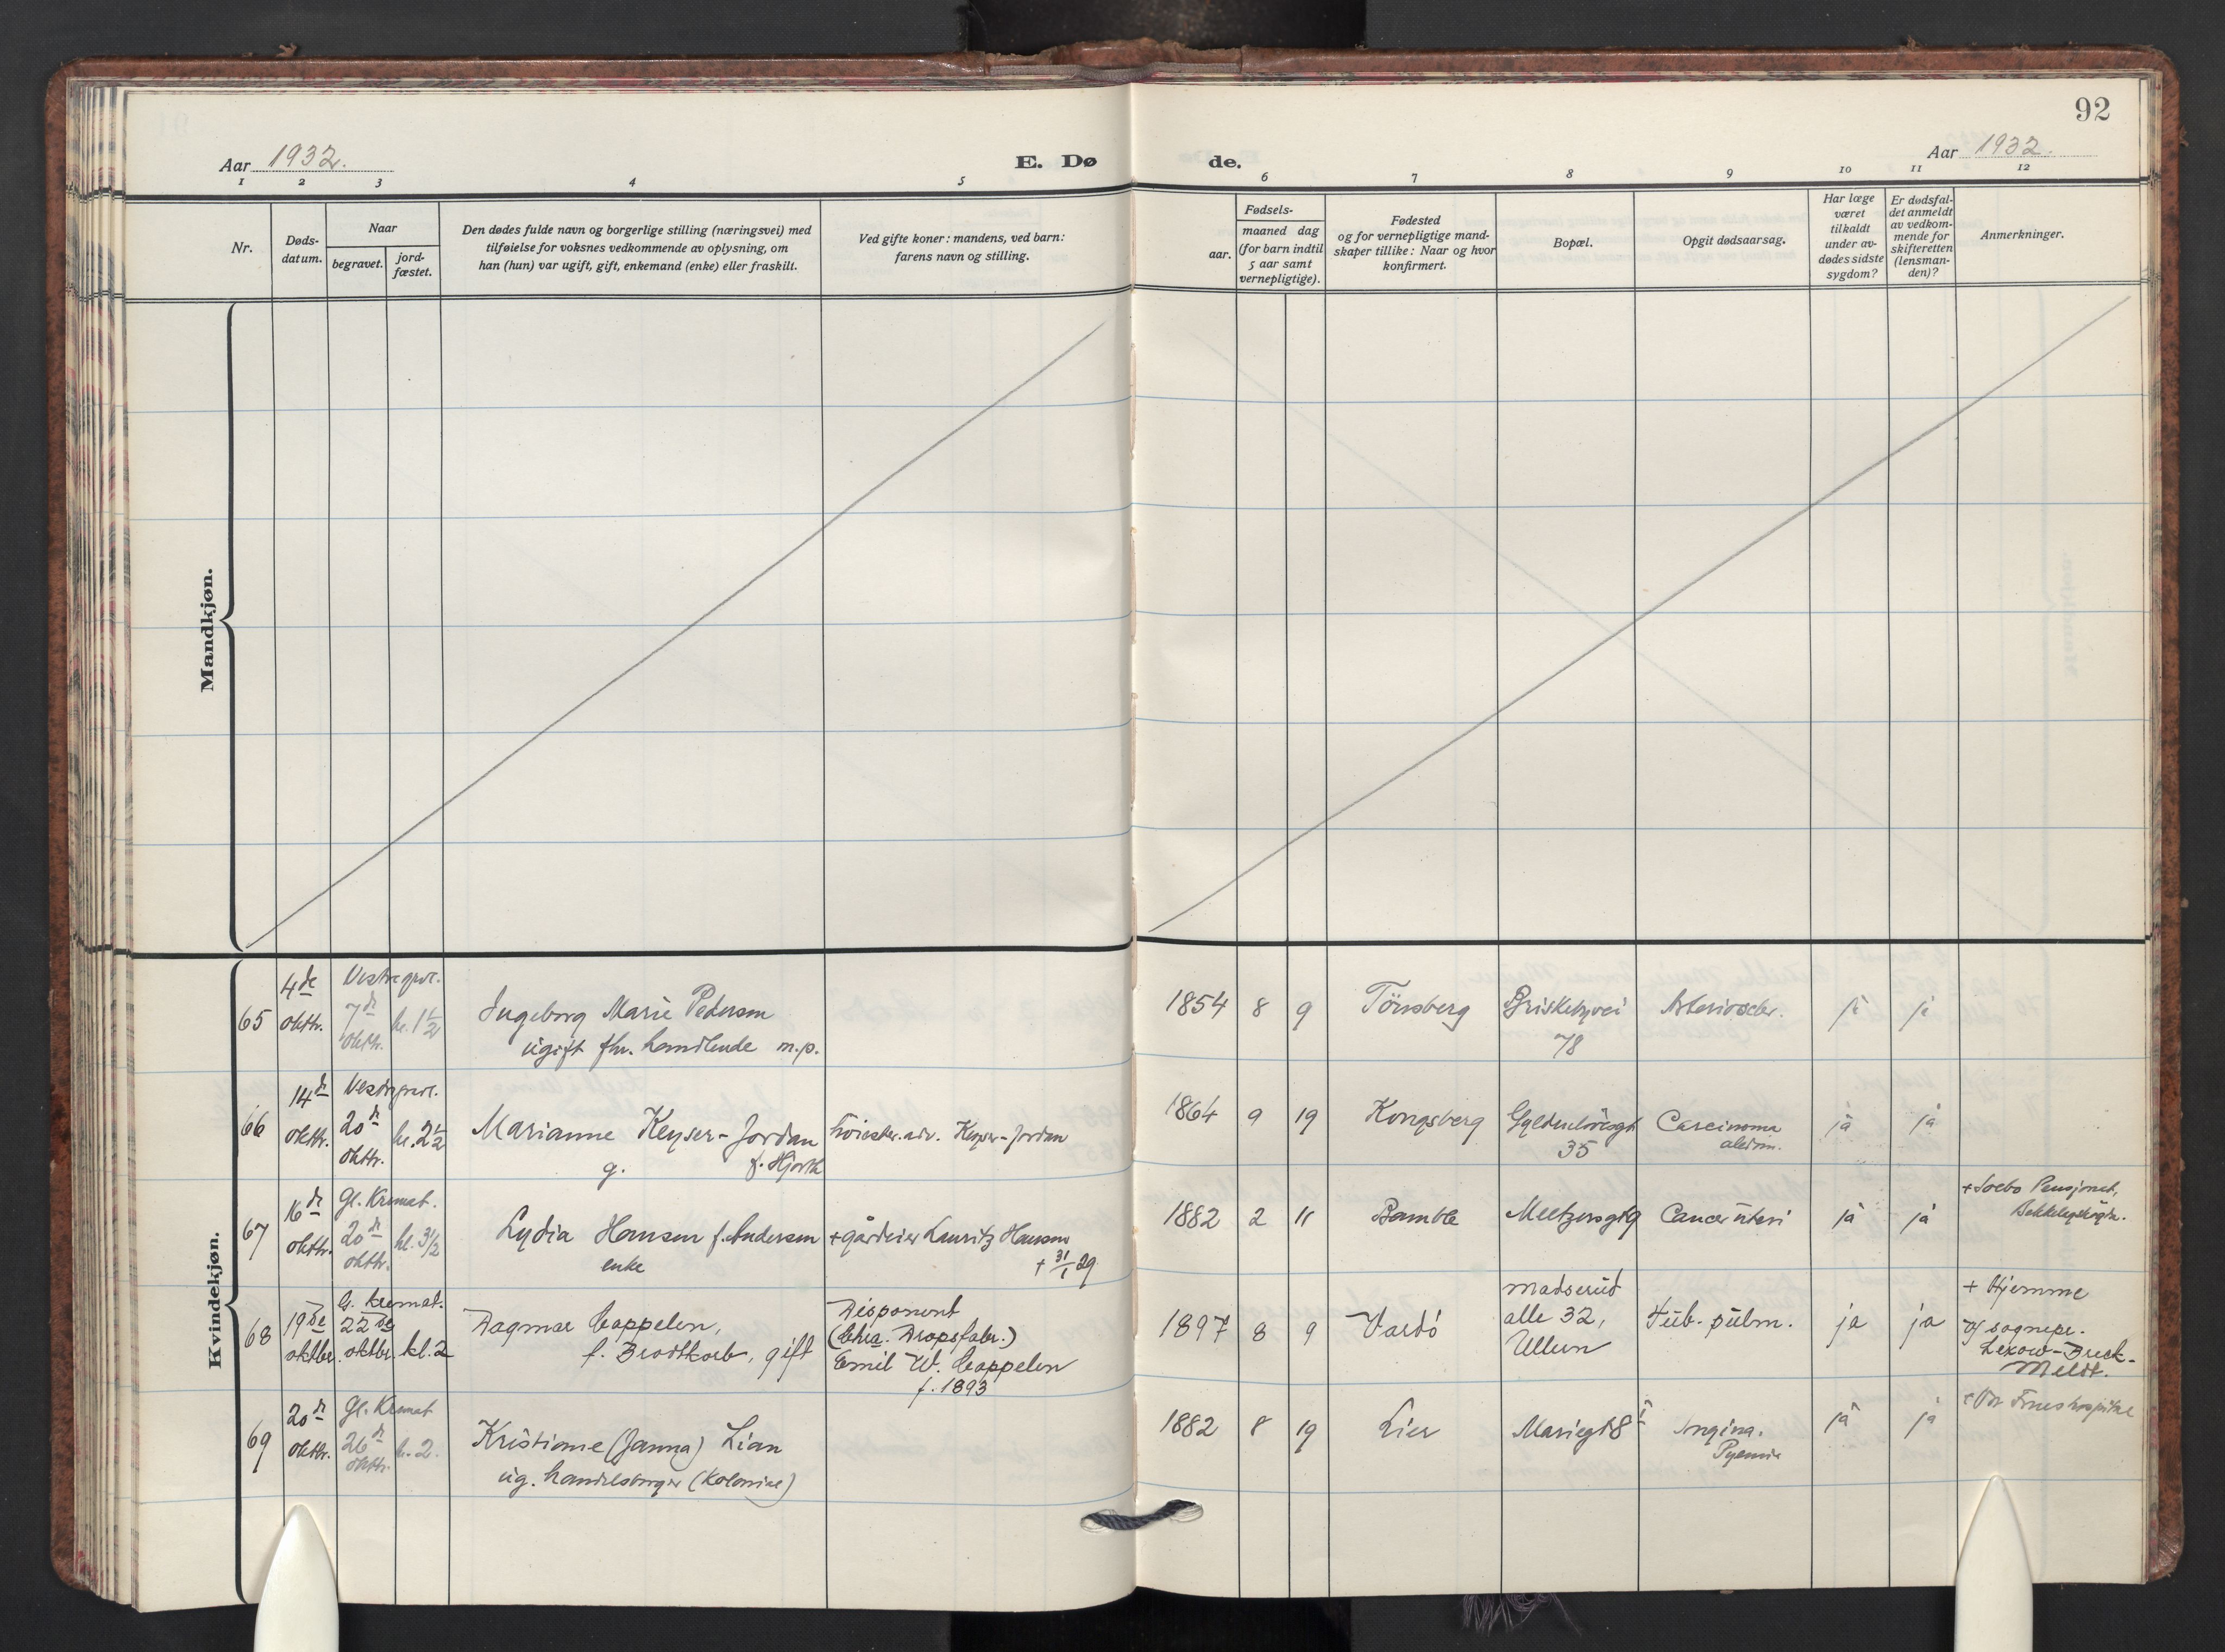 92
Aar 1932.
E. Dø
de.
Aar 1932.
1 2 3 4 5 6 7 8 9 10 11 12
Nr.
Døds-
datum.
Naar
begravet.
jord-
fæstet.
Den dødes fulde navn og borgerlige stilling (næringsvei) med
tilføielse for voksnes vedkommende av oplysning, om
han (hun) var ugift, gift, enkemand (enke) eller fraskilt.
Ved gifte koner: mandens, ved barn:
farens navn og stilling.
aar.
Fødsels-
maaned dag
(for barn indtil
5 aar samt
vernepligtige).
Fødested
og for vernepligtige mand-
skaper tillike: Naar og hvor
konfirmert.
Bopæl.
Opgit dødsaarsag.
Har læge
været
tilkaldt
under av-
dødes sidste
sygdom?
Er dødsfal-
det anmeldt
av vedkom-
mende for
skifteretten
(lensman-
den)?
Anmerkninger.
Mandkjøn.
Kvindekjøn.
65
4de
oktbr.
Vestre grvl.
7de
oktbr.
kl. 1½
Ingeborg Marie Pedersen
ugift fhv. handlende m.p.
1854 8 9
Tönsberg
Briskebyvei
78
Arterioscler.
ja
ja
66
14de
oktbr.
Vestre grvl.
20de
oktbr.
kl. 2½
Marianne Keyser-Jordan
g. f. Hjorth
høiester.adv. Keyser-Jordan
1864 9 19
Kongsberg
Gyldenløvesgt
35
Carcinoma
abdom.
ja
ja
67
16de
oktbr.
Gl. Kremat.
20de
oktbr.
kl. 3½
Lydia Hansen f. Andersen
enke
+ gårdeier Lauritz Hansen
+ 31/1 29
1882 2 11
Bamble
Meltzersgt 9
Cancer uteri
ja
ja
+ Soebo Pensjonat,
68
19de
oktbr.
Gl. kremat.
22de
oktbr. kl. 2
Dagmar Cappelen,
f. Brodtkorb, gift
Disponent
(Chra. Dropsfabr.)
Emil W. Cappelen
f. 1893
1897 8 9
Vardö
Madserud
alle 32,
Ullern
Tub. pulm.
ja
ja
+ Hjemme
Af sognepr.
Lexow-Breck-
Meldt.
69
20de
oktbr.
Gl. Kremat
26de
oktbr.
kl. 2.
Kristiane (Janna) Lian
ug. handelsborger (Kolonial)
1882 8 19
Lier
Mariegt 8
Angina.
Pyemie
ja
ja
+ Vor Frues hospital